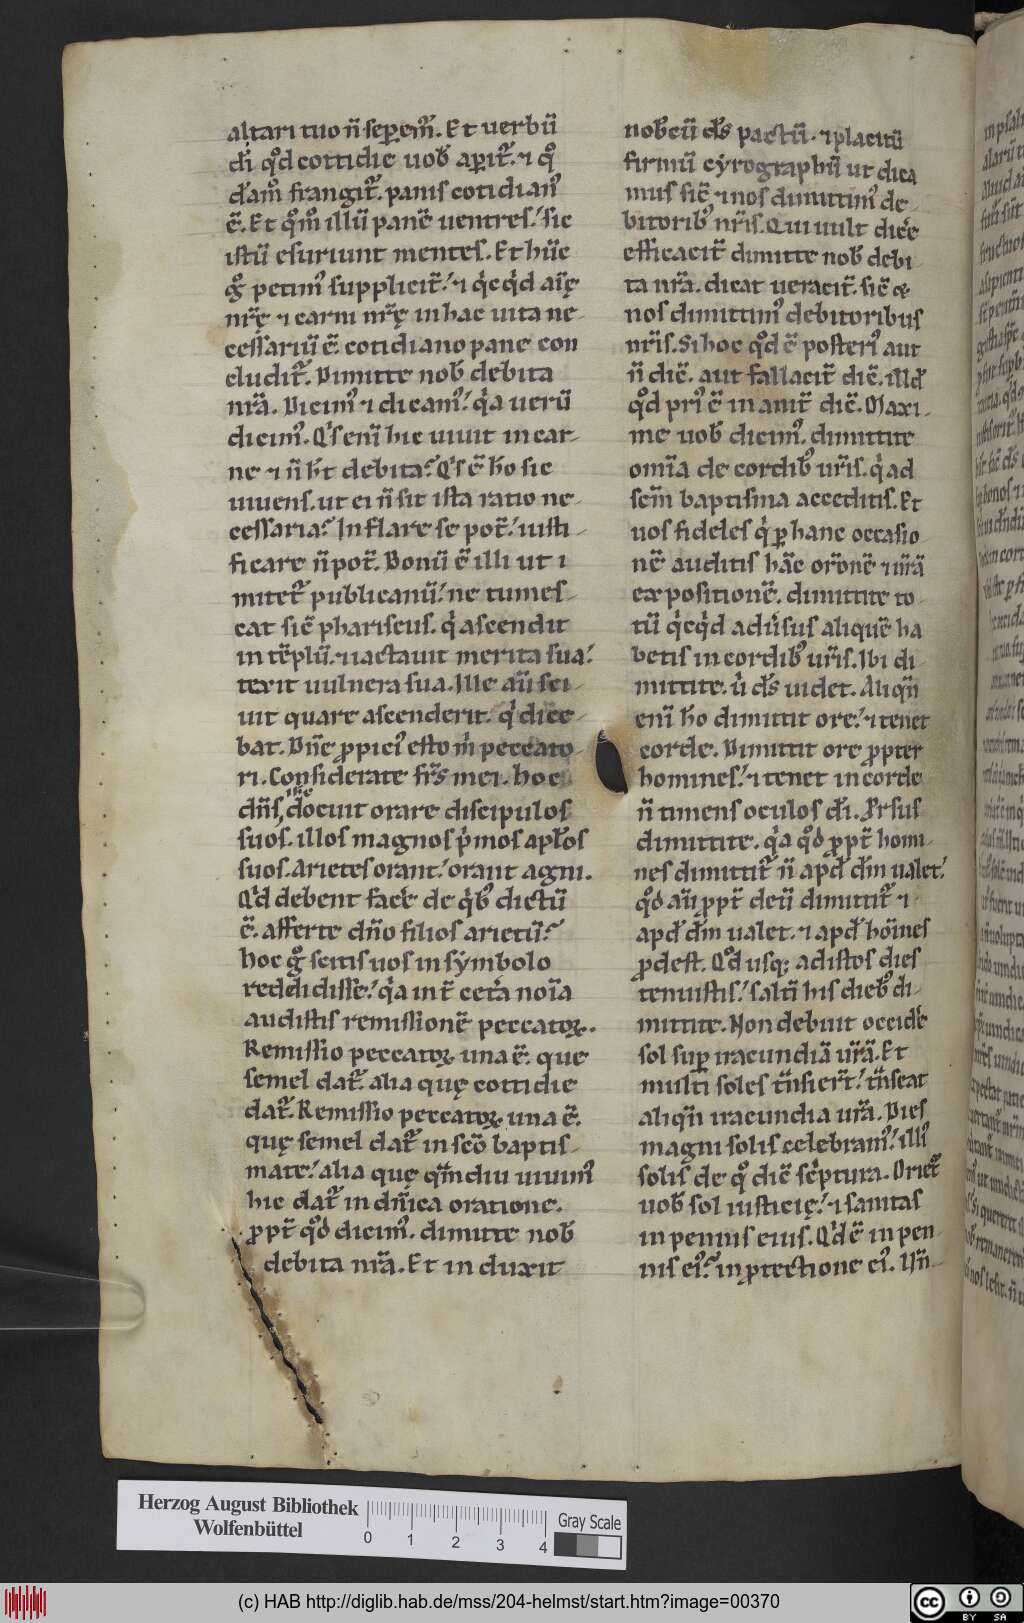 altari tuo n̄ sep̲em̄. Et uerbū
dī qͦd cottidie uob̄ ap̲it᷑. ⁊ qͦ
dām̄ frangit᷑. panis cotidian᷒
ē. Et qͦm̊ illū panē uentres. sic
istū esuriunt mentes. Et hūc
gͦ petim᷒ suppliciť. ⁊ qͥcqͥd aīę
nr̄ę ⁊ carni nr̄ę in hac uita ne-
cessariū ē. cotidiano pane con
cludit᷑. Dimitte nob̄ debita
nr̄a. Dicim᷒ ⁊ dicam᷒. qͥa uerū
dicim᷒. Qͥs enī hic uiuit in car-
ne ⁊ n̄ h̄t debita? Qͥs ē h̄o sic
uiuens. ut ei n̄ sit ista ratio ne-
cessaria? Inflare se poť. iusti-
ficare n̄ poť. Bonū ē illi ut i-
mitet᷑ publicanū. ne tumes-
cat sic̄ phariseus. qͥ ascendit
in tēplū. ⁊ iactauit merita sua.
texit uulnera sua. Ille aū sci-
uit quare ascenderit. qͥ dice-
bat. Dn̄e ꝓpici᷒ esto m̄ peccato-
ri. Considerate fr̄s mei. hoc
dn̄s ihc docuit orare discipulos
suos. illos magnos pͥmos ap̄los
suos. Arietes orant. orant agni.
Qͥd debent facēe de qͥb᷒ dictū
ē. afferte dn̄o filios arietū?
hoc gͦ scitis uos in symbolo
reddidisse. qͥa int̄ cet̄a noīa
audistis remissionē peccatoꝝ.
Remissio peccatoꝝ una ē. que
semel dat᷑. alia quę cottidie
dat᷑. Remissio peccatoꝝ una ē.
quę semel dat᷑ in sc̄o baptis-
mate. alia quę qm̄diu uiuim᷒
hic dat᷑ in dn̄ica oratione.
ꝓpt̄ qͦd dicim᷒. dimitte nob̄
debita nr̄a. Et induxit
nob̄cū d̄s pactū. ⁊ placitū
firmū cyrographū ut dica
mus sic̄ ⁊ nos dimittim᷒ de-
bitorib᷒ nr̄is. Qui uult dicēe
efficaciť dimitte nob̄ debi-
ta nr̄a. dicat ueraciť. sic̄ ⁊
nos dimittim᷒ debitoribus
nr̄is. Si hoc qͦd ē posteri᷒ aut
n̄ dic̄. aut fallaciť dic̄. illd̄
qͦd pri᷒ ē inaniť dic̄. Maxi-
me uob̄ dicim᷒. dimittite
omīa de cordib᷒ ur̄is. qͥ ad
scm̄ baptisma acceditis. Et
uos fideles qͥ ꝑ hanc occasio
nē auditis hāc or̄onē ⁊ nr̄ā
expositionē. dimittite to-
tū qͥcqͥd adūsus aliquē ha
betis in cordib᷒ ur̄is. Ibi di-
mittite. uͥ d̄s uidet. Aliqn̄
enī h̄o dimittit ore. ⁊ tenet
corde. Dimittit ore ꝓpter
homines. ⁊ tenet in corde
n̄ timens oculos dī. Prsus
dimittite. qͥa qͦd ꝓpt̄ homi-
nes dimittit᷑ n̄ apd̄ dm̄ ualet.
qͦd aū ꝓpt̄ deū dimittit᷑ ⁊
apd̄ dm̄ ualet. ⁊ apd̄ hoīnes
ꝓdest. Qͦd usq; ad istos dies
tenuistis. saltī his dieb᷒ di-
mittite. Non debuit occidēe
sol sup̲ iracundiā ur̄ā. Et
multi soles tn̄sierť. tn̄seat
aliqn̄ iracundia ur̄a. Dies
magni solis celebram᷒. illi᷒
solis de qͦ dic̄ scͥptura. Oriet᷑
uob̄ sol iusticię. ⁊ sanitas
in pennis eius. Qͥd ē in pen-
nis ei᷒? in ꝓtectione ei᷒. Un̄
Herzog August Bibliothek
Wolfenbüttel
0 1 2 3 4
Gray Scale
(c) HAB http://diglib.hab.de/mss/204-helmst/start.htm?image=00370
cc BY SA